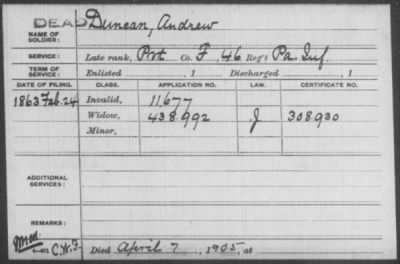 DEAD
NAME OF SOLDIER: Duncan, Andrew
SERVICE: Late rank, Pvt Co. F, 46 Reg't Pa. Inf.
TERM OF SERVICE: Enlisted , 1 Discharged , 1
DATE OF FILING. CLASS. APPLICATION NO. LAW. CERTIFICATE NO.
1863 Feb. 24 Invalid, 11.677
Widow, 438.992 J 308.930
Minor,
ADDITIONAL SERVICES:
REMARKS:
C.W.F. Died April 7, 1905, at